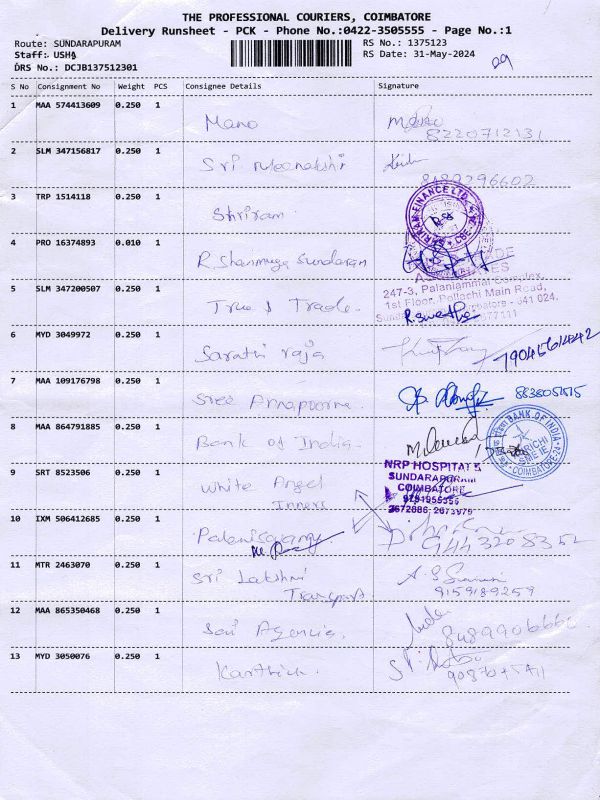 THE PROFESSIONAL COURIERS, COIMBATORE
Delivery Runsheet - PCK - Phone No.:0422-3505555 - Page No.:1
Route: SUNDARAPURAM
RS No.: 1375123
Staff: USHA
RS Date: 31-May-2024
DRS No.: DCJB137512301
29
S No Consignment No Weight PCS Consignee Details Signature
1 MAA 574413609 0.250 1
Mano
8220712131
2 SLM 347156817 0.250 1
Sri Meenakshi
8189296602
3 TRP 1514118 0.250 1
Shriram
4 PRO 16374893 0.010 1
R. Shanmuga Sundaram
5 SLM 347200507 0.250 1
247-3, Palaniammal Complex,
1st Floor, Pollachi Main Road,
Tru & Trade.
R. Swetha
6 MYD 3049972 0.250 1
Sarathi raja
7904561442
7 MAA 109176798 0.250 1
Sree Annapoorna
8 MAA 864791885 0.250 1
Bank of India
BANK OF INDIA
SME
COIMBATORE-24
9 SRT 8523506 0.250 1
NRP HOSPITALS
SUNDARAPURAM
COIMBATORE
White Angel
Inners
2672886 2673979
10 IXM 506412685 0.250 1
Palanisamy
9443208352
11 MTR 2463070 0.250 1
Sri Lakshmi
Transport
9159189259
12 MAA 865350468 0.250 1
Sai Agencies.
13 MYD 3050076 0.250 1
Karthick